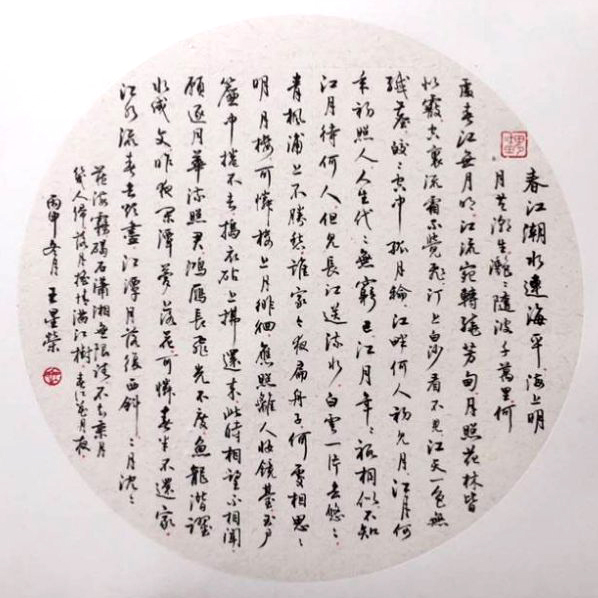 春江潮水連海平海上明
月共潮生灩〻隨波千萬里何
處春江無月明江流宛轉繞芳甸月照花林皆
似霰空裏流霜不覺飛汀上白沙看不見江天一色無
纖塵皎〻空中孤月輪江畔何人初見月江月何
年初照人人生代〻無窮已江月年〻祗相似不知
江月待何人但見長江送流水白雲一片去悠〻
青楓浦上不勝愁誰家今夜扁舟子何處相思〻
明月樓可憐樓上月徘徊應照離人妝鏡臺玉戶
簾中捲不去搗衣砧上拂還來此時相望不相聞
願逐月華流照君鴻雁長飛光不度魚龍潛躍
水成文昨夜閑潭夢落花可憐春半不還家
江水流春去欲盡江潭月落復西斜〻月沈〻
藏海霧碣石瀟湘無限路不知乘月
幾人歸落月搖情滿江樹春江花月夜
丙申冬月王星榮